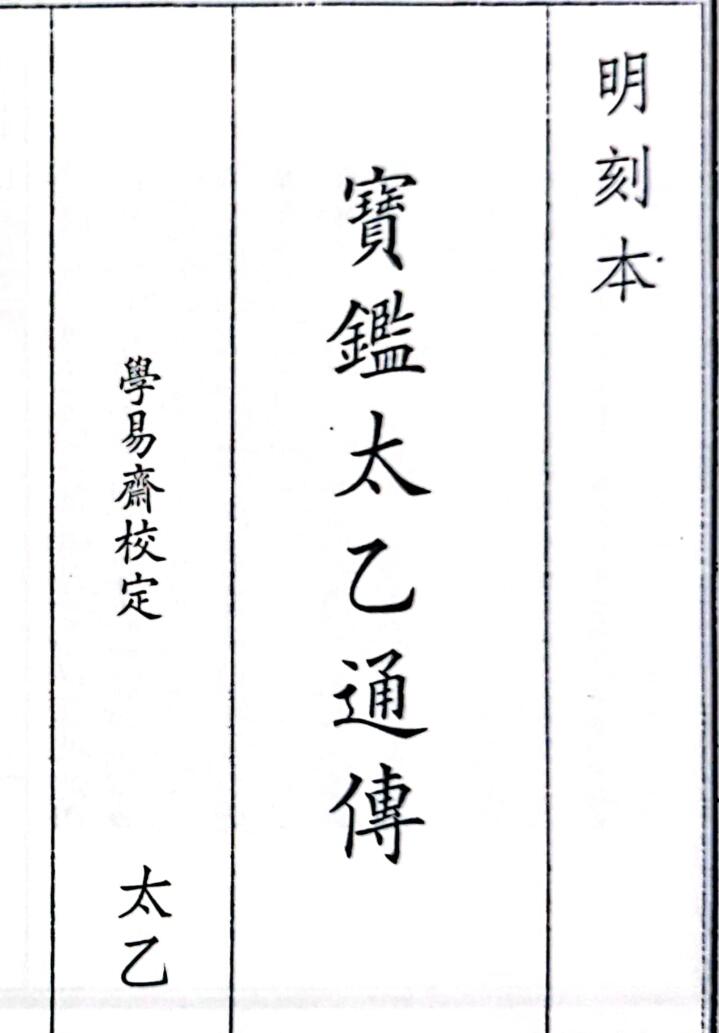 明刻本
寶鑑太乙通傳
學易齋校定
太乙